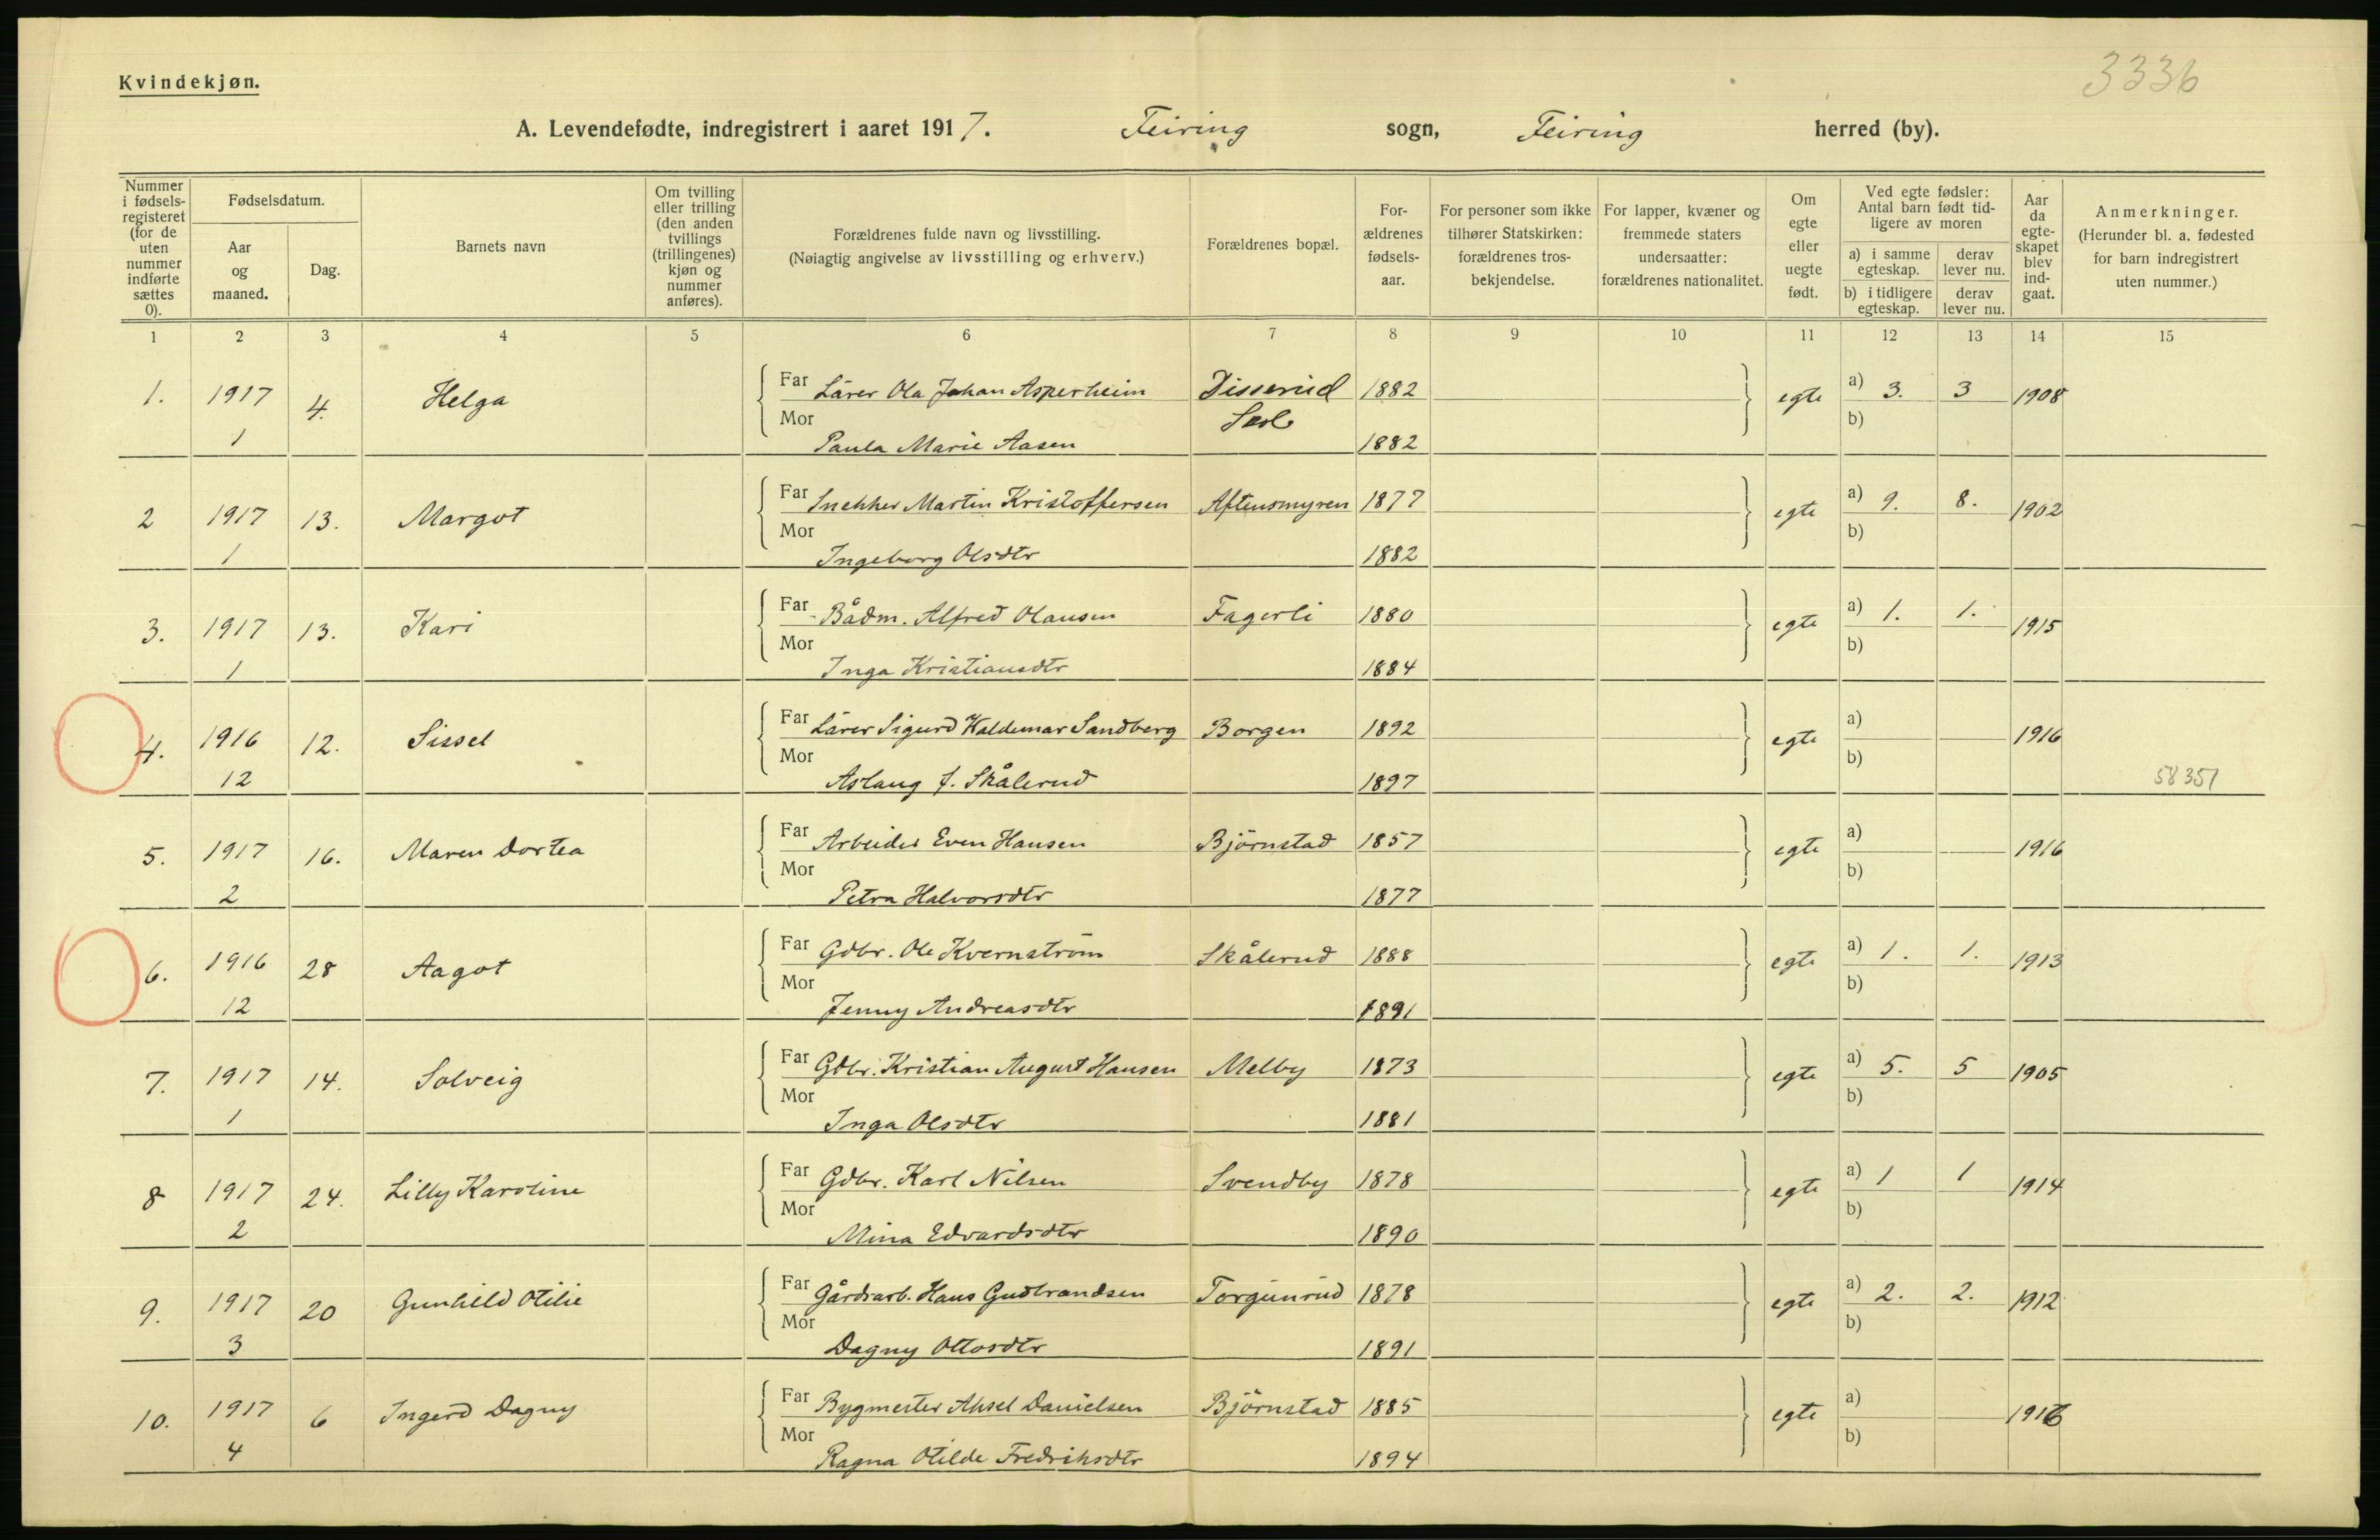 Kvindekjøn.
3336
A. Levendefødte, indregistrert i aaret 1917. Feiring sogn, Feiring herred (by).
Nummer i fødselsregisteret (for de uten nummer indførte sættes 0).
Fødselsdatum.
Aar og maaned.
Dag.
Barnets navn
Om tvilling eller trilling (den anden tvillings (trillingenes) kjøn og nummer anføres).
Forældrenes fulde navn og livsstilling.
(Nøiagtig angivelse av livsstilling og erhverv.)
Forældrenes bopæl.
Forældrenes fødselsaar.
For personer som ikke tilhører Statskirken: forældrenes trosbekjendelse.
For lapper, kvæner og fremmede staters undersaatter: forældrenes nationalitet.
Om egte eller uegte født.
Ved egte fødsler: Antal barn født tidligere av moren
a) i samme egteskap. derav lever nu.
b) i tidligere egteskap. derav lever nu.
Aar da egteskapet blev indgaat.
Anmerkninger.
(Herunder bl. a. fødested for barn indregistrert uten nummer.)
1 2 3 4 5 6 7 8 9 10 11 12 13 14 15
1. 1917 4. Helga Far Lärer Ola Johan Asperheim Disserud 1882 egte a) 3. 3 1908
Mor Skole b)
1 Paula Marie Aasen 1882
2 1917 13. Margot Far Snekker Martin Kristoffersen Aftensmyren 1877 egte a) 9. 8. 1902
Mor b)
1 Ingeborg Olsdtr 1882
3. 1917 13. Kari Far Bådm. Alfred Olausen Fagerli 1880 egte a) 1. 1. 1915
Mor b)
1 Inga Kristiansdtr 1884
4. 1916 12. Sissel Far Lärer Sigurd Waldemar Sandberg Borgen 1892 egte a) 1916
Mor b)
12 Aslaug J. Skålerud 1897 58351
5. 1917 16. Maren Dortea Far Arbeider Even Hansen Björnstad 1857 egte a) 1916
Mor b)
2 Petra Halvorsdtr 1877
6. 1916 28 Aagot Far Gdbr. Ole Kvernström Skålerud 1888 egte a) 1. 1. 1913
Mor b)
12 Jenny Andreasdtr 1891
7. 1917 14. Solveig Far Gdbr. Kristian August Hansen Melby 1873 egte a) 5. 5 1905
Mor b)
1 Inga Olsdtr 1881
8 1917 24. Lilly Karoline Far Gdbr. Karl Nilsen Svendby 1878 egte a) 1 1 1914
Mor b)
2 Mina Edvardsdtr 1890
9. 1917 20 Gunhild Otilie Far Gårdsarb. Hans Gudbrandsen Torgunrud 1878 egte a) 2. 2. 1912
Mor b)
3 Dagny Ottosdtr 1891
10. 1917 6 Ingerd Dagny Far Bygmester Aksel Danielsen Björnstad 1885 egte a) 1916
Mor b)
4 Ragna Otilde Fredriksdtr 1894